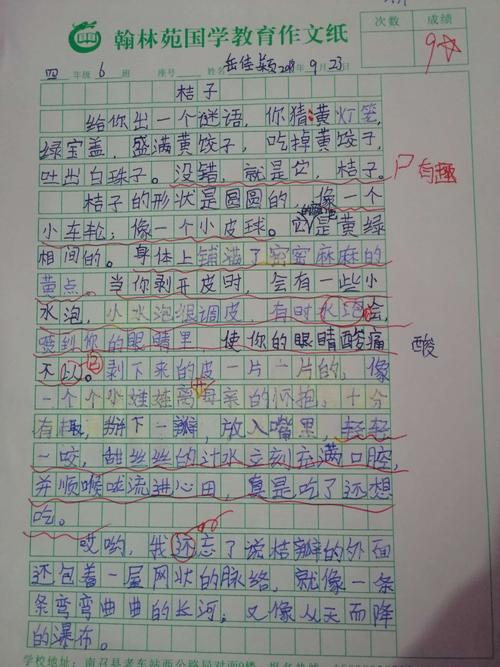 翰林苑国学教育作文纸
次数 成绩
9☆
四 年级 6 班 座号 姓名 岳佳颖 2018年9月23日
桔子
给你出一个谜语，你猜：黄灯笼，
绿宝盖，盛满黄饺子，吃掉黄饺子，
吐出白珠子。没错，就是它，桔子。
有趣
桔子的形状是圆圆的，像一个
小车轮；像一个小皮球。它是黄绿
相间的。身体上铺满了密密麻麻的
黄点。当你剥开皮时，会有一些小
水泡，小水泡很调皮，有时水泡会
喷到你的眼睛里，使你的眼睛酸痛
酸
不以。剥下来的皮一片一片的，像
一个个小娃娃离母亲的怀抱，十分
有趣，掰下一瓣，放入嘴里，轻轻
一咬，甜丝丝的汁水立刻充满口腔，
并顺喉咙流进心田，真是吃了还想
吃。
哎哟，我还忘了说桔瓣的外面
还包着一层网状的脉络，就像一条
条弯弯曲曲的长河；又像从天而降
的瀑布。
学校地址：南召县老车站西公路局对面9楼 报名热线